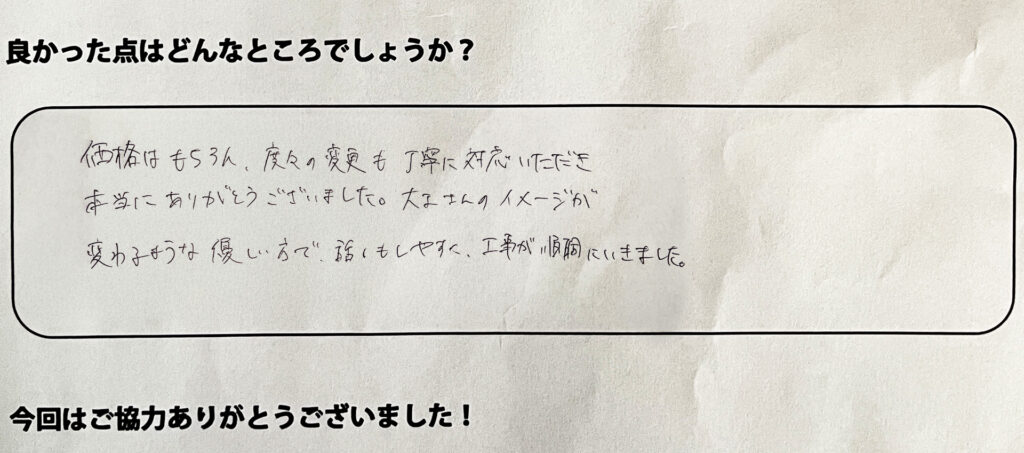 良かった点はどんなところでしょうか？
価格はもちろん、度々の変更も丁寧に対応いただき
本当にありがとうございました。大工さんのイメージが
変わるような優しい方で、話しもしやすく、工事が順調にいきました。
今回はご協力ありがとうございました！